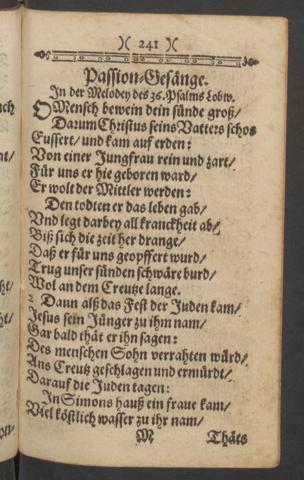 )( 241 )(
Passion-Gesänge.
In der Melodey des 36. Psalms Lobw.
O Mensch bewein dein sünde groß/
Darum Christus seins Vatters schos
Eussert/ und kam auf erden:
Von einer Jungfrau rein und zart/
Für uns er hie geboren ward/
Er wolt der Mittler werden:
Den todten er das leben gab/
Vnd legt darbey all kranckheit ab/
Biß sich die zeit her drange/
Daß er für uns geopffert wurd/
Trug unser sünden schwäre burd/
Wol an dem Creutze lange.
2 Dann alß das Fest der Juden kam/
Jesus sein Jünger zu ihm nam/
Gar bald thät er ihn sagen:
Des menschen Sohn verrahten würd/
Ans Creutz geschlagen und ermürdt/
Darauf die Juden tagen:
In Simons hauß ein fraue kam/
Viel köstlich wasser zu ihr nam/
M Thäts